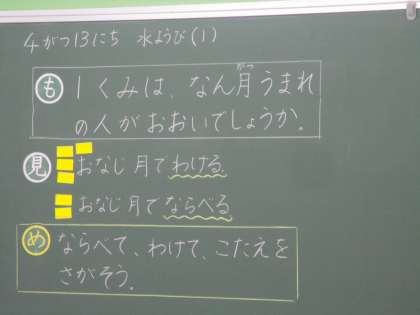 4がつ13にち 水ようび(1)
も 1くみは、なん月うまれ
がつ
の人がおおいでしょうか。
見 おなじ月でわける
おなじ月でならべる
め ならべて、わけて、こたえを
さがそう。